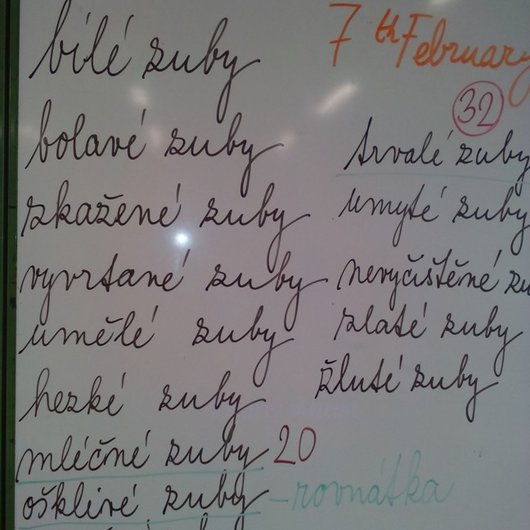 bílé zuby
7th February
32
bolavé zuby
trvalé zuby
zkažené zuby
umyté zuby
vyvrtané zuby
nevyčištěné zu
umělé zuby
zlaté zuby
hezké zuby
žluté zuby
mléčné zuby 20
ošklivé zuby - rovnátka